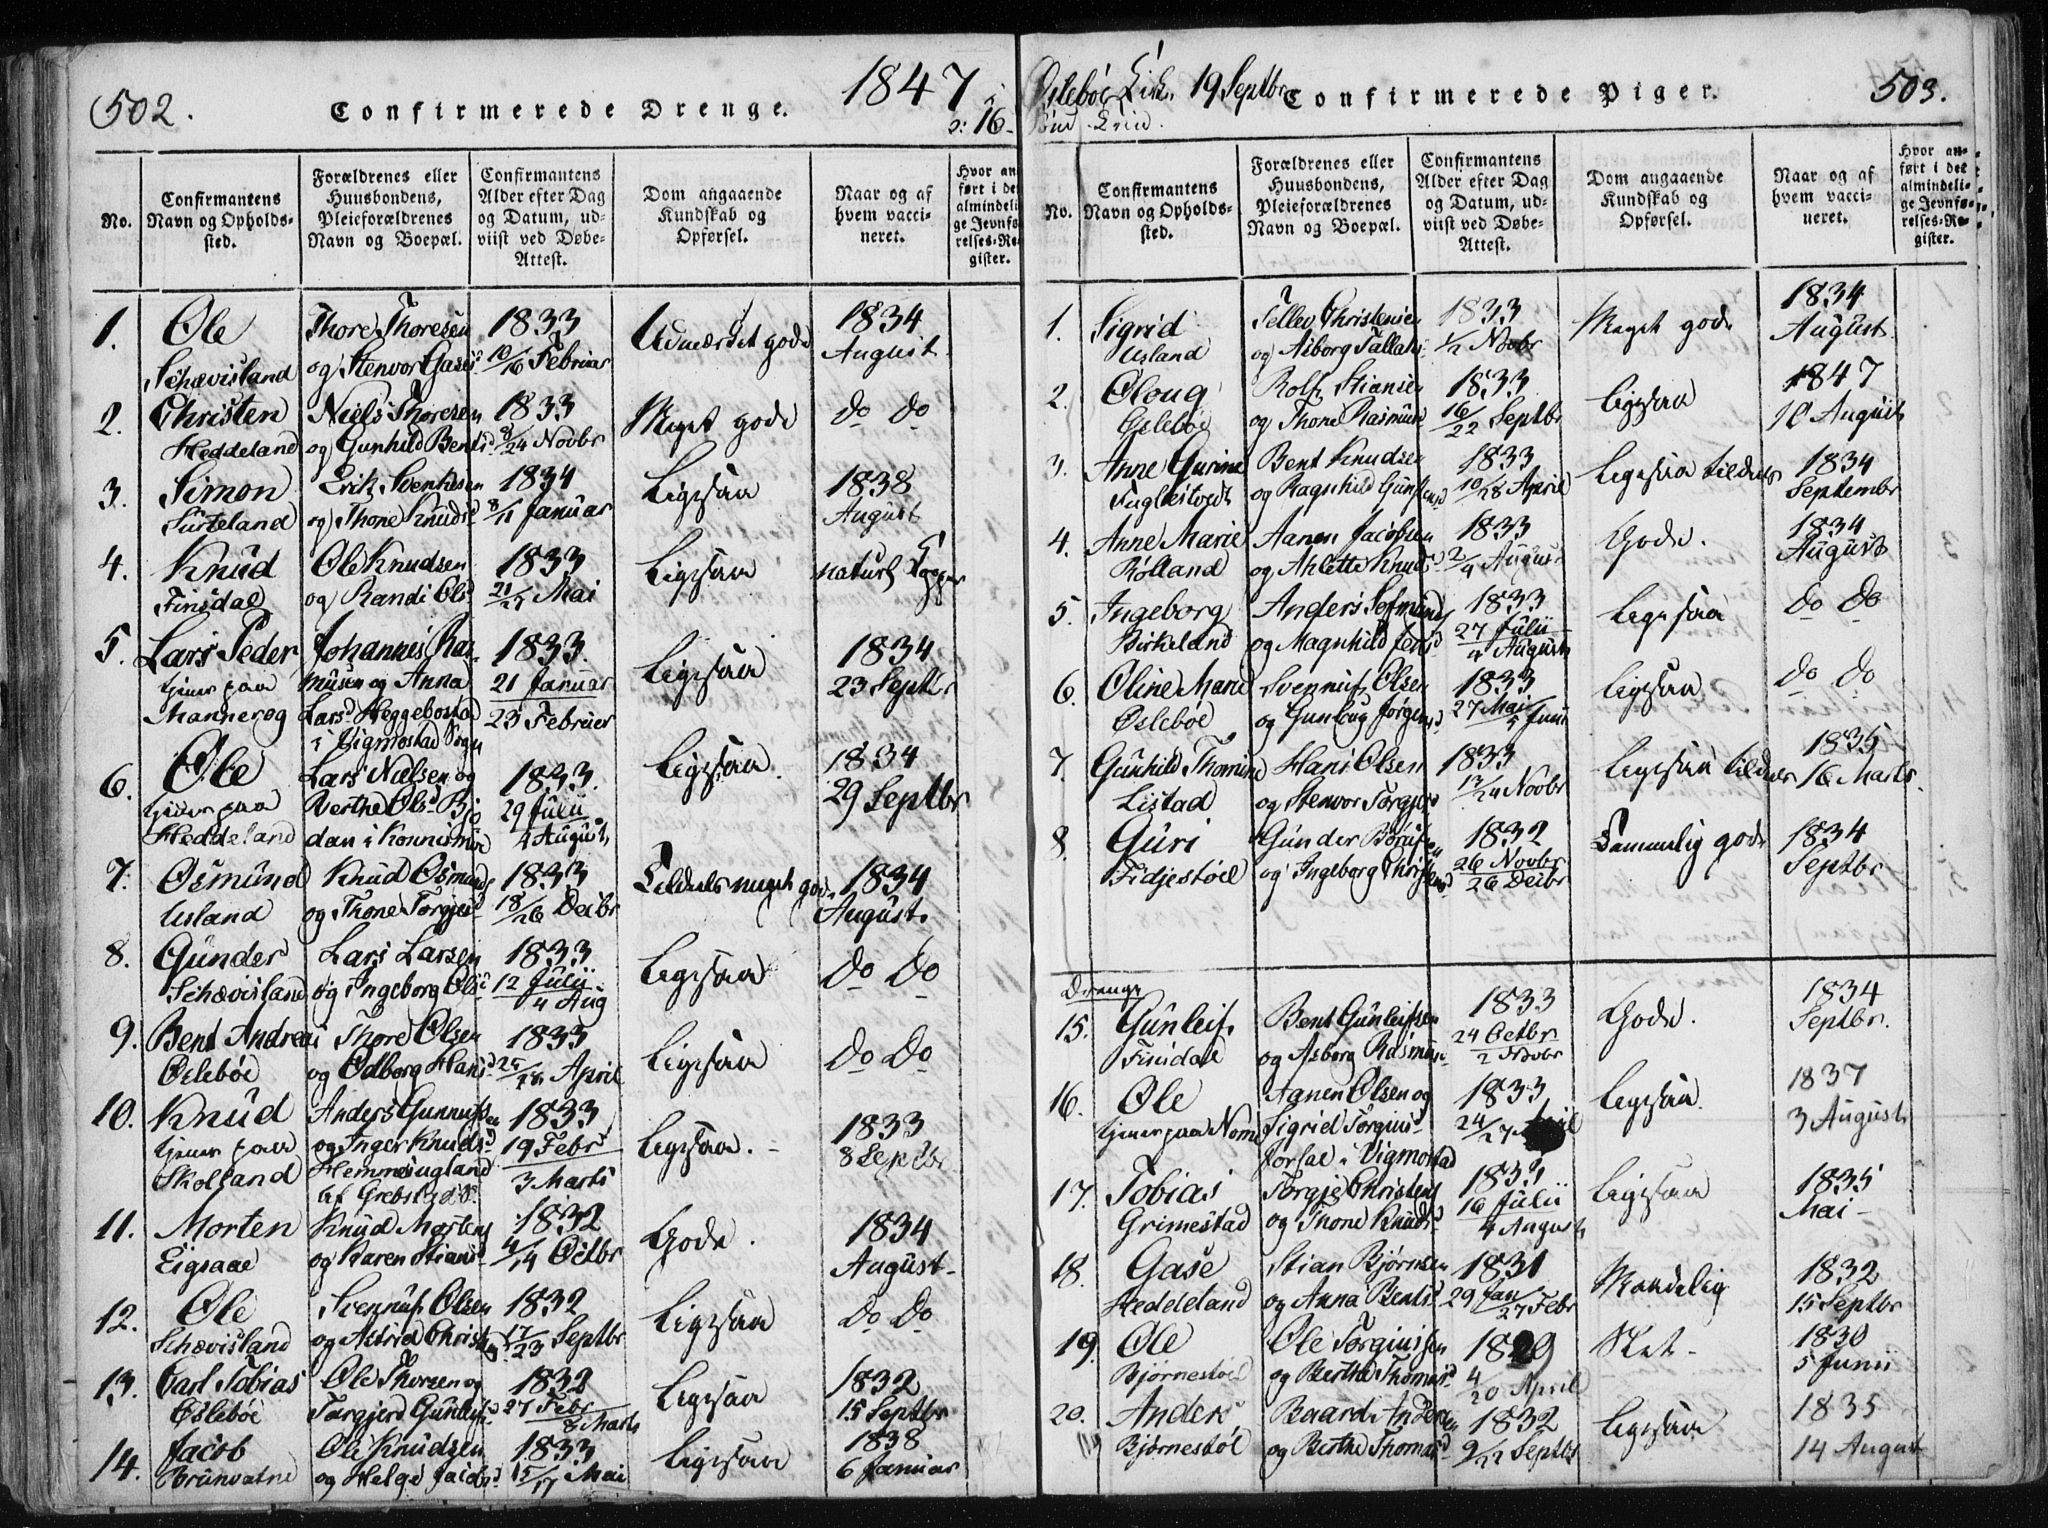 502.
Confirmerede Drenge.
1847
Confirmantens Navn og Opholdssted.
No.
Forældrenes eller Huusbondens, Pleieforældrenes Navn og Boepæl.
Confirmantens Alder efter Dag og Datum, udviist ved Døbe-Attest.
Dom angaaende Kundskab og Opførsel.
Naar og af hvem vaccineret.
Hvor anført i det almindelige Jevnførelses-Register.
1. Ole Thore Thoresen 1833 Udmærket gode 1834
Schævisland og Stenvor Gases 10/16 Februar August
2. Christen Niels Thoresen 1833 Meget gode do do
Heddeland og Gunhild Bentsd 8/24 Novbr
3. Simon Erik Svenksen 1834 Ligesaa 1838
Surteland og Thone Knudsd 8/11 Januar August
4. Knud Ole Knudsen 1833 Ligesaa naturl Kopper
Finsdal og Randi Olsd 21/27 Mai
5. Lars Peder Johannes Ras- 1833 Ligesaa 1834
tjener paa musen og Anna 21 Januar 23 Septbr
Mannerog Larsd Heggebostad 23 Februer
i Vigmostad Sogn
6. Ole Lars Nielsen og 1833 Ligesaa 1834
tjener paa Berthe Olsd Bjo 29 Julii 29 Septbr
Heddeland dan i Konnismoe 4 August
7. Osmund Knud Osmunds 1833 Tildels meget gode 1834
Usland og Thone Torgjusd 18/26 Decbr August.
8. Gunder Lars Larsen 1833 Ligesaa do do
Schævisland og Ingeborg Ols 12 Julii
4 Aug
9. Bent Andreas Thore Olsen 1833 Ligesaa do do
Øslebøe og Odborg Hansd 25/28 April
10. Knud Anders Gunnufsen 1833 Ligesaa. 1833
tjener paa og Inger Knudsd 19 Febr 8 Septbr
Skolland Hemmesugland 3 Marts
af Grebstad S.
11. Morten Knud Mortens 1832 Gode. 1834
Eigsaae og Karen Stians 4/14 Octbr August
12. Ole Svennuf Olsen 1832 Ligesaa do do
Schævisland og Astrid Christens 17/23 Septbr
13. Carl Tobias Ole Thorsen og 1832 Ligesaa 1832
Øslebøe Torgjerd Gunleifsd 27 Febr 15 Septbr
8 Marts
14. Jacob Ole Knudsen 1833 Ligesaa 1838
Brunvatne og Helge Jacobsd 15/17 Mai 6 Januar
Øslebøe Kirke 19 Septbr
Confirmerede Piger.
503.
No.
Confirmantens Navn og Opholdssted.
Forældrenes eller Huusbondens, Pleieforældrenes Navn og Boepæl.
Confirmantens Alder efter Dag og Datum, udviist ved Døbe-Attest.
Dom angaaende Kundskab og Opførsel.
Naar og af hvem vaccineret.
Hvor anført i det almindelige Jevnførelses-Register.
1. Sigrid Tellev Christensen 1833 Meget gode 1834
Usland og Asborg Tallaks 1/2 Novbr August
2. Oloug Rolf Stiansen 1833 Ligesaa 1847
Øslebøe og Thone Rasmusd 16/22 Septbr 10 August
3. Anne Gurine Bent Knudsen 1833 Ligesaa tildels 1834
Fuglestvedt og Ragnhild Gunstensd 10/28 April Septembr
4. Anne Marie Aanen Jacobsen 1833 Gode. 1834
Rølland og Ahlette Knudsd 2/4 August August
5. Ingeborg Anders Sofmunds 1833 Ligesaa do do
Birkeland og Magnhild Jensd 27 Julii
4 August
6. Oline Marie Svennuf Olsen 1833 Ligesaa do do
Øslebøe og Gunloug Jørgensd 27 Mai
5 Juni
7. Gunhild Thomine Hans Olsen 1833 Ligesaa tildels 1835
Listad og Stenvor Torgjusd 17/24 Novbr 16 Marts.
8. Guri Gunder Børufsen 1832 Temmelig gode 1834
Fidjestøel og Ingeborg Thorstensd 26 Novbr Septbr
26 Decbr
Drenge
15. Gunleif Bent Gunleifsen 1833 Gode. 1834
Finsdal og Asborg Rasmusd 24 Octbr Septbr.
2 Novbr
16. Ole Aanen Olsen og 1833 Ligesaa. 1837
tjener paa Nome Sigrid Torgius- 24/27 April 3 August
Jorsal i Vigmostad
17. Tobias Torgje Christens 1833 Ligesaa 1835
Grimestad og Thone Knudsd 16 Julii Mai
4 August
18. Gase Stian Bjørnsen 1831 Maadelig 1832
Heddeland og Anna Bentsd 29 Jan 15 Septbr
27 Febr
19. Ole Ole Torgiussen 1829 Slet 1830
Bjørnestøel og Berthe Thomasd 4/20 April 5 Junii
20. Anders Baard Andersen 1832 Ligesaa 1835
Bjørnestøl og Berthe Thomasd 9/22 Septbr 14 August